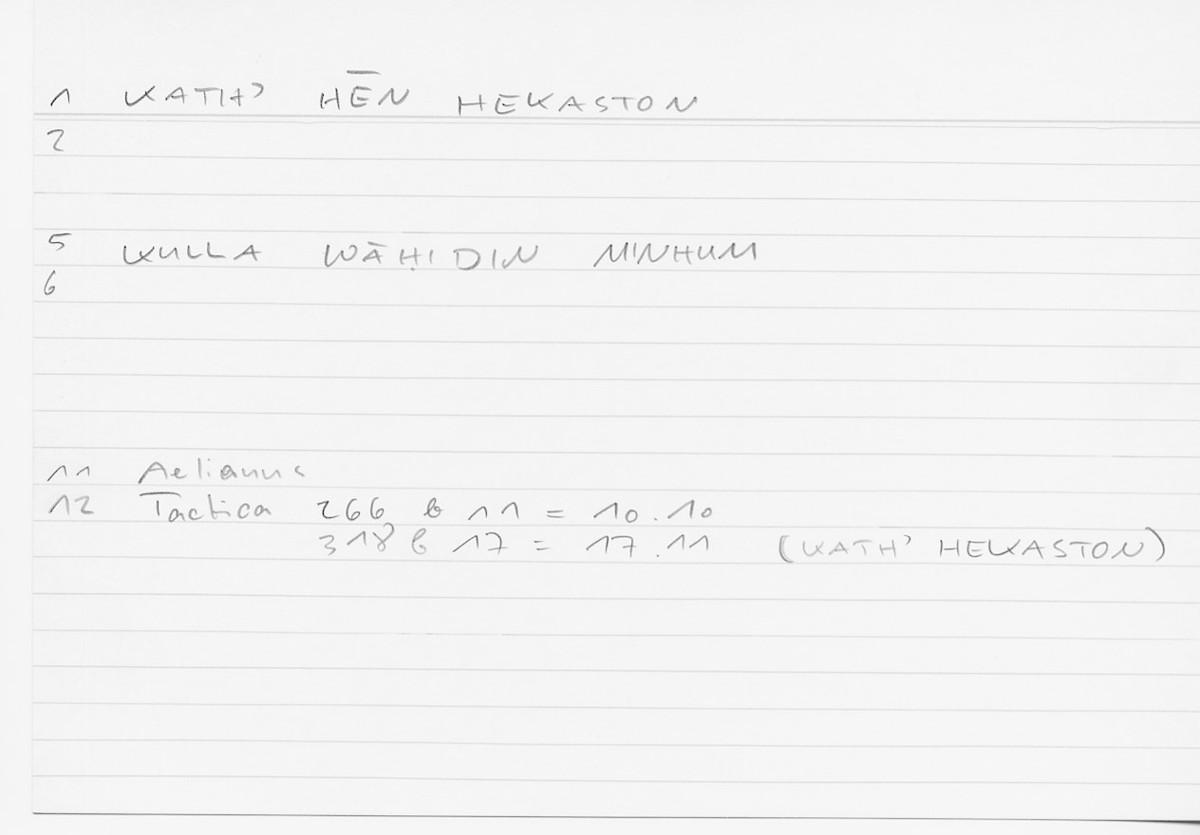 1 KATH' HĒN HEKASTON
2
5 KULLA WĀḤIDIN MINHUM
6
11 Aelianus
12 Tactica 266 b 11 = 10.10
318 b 17 = 17.11 (KATH' HEKASTON)